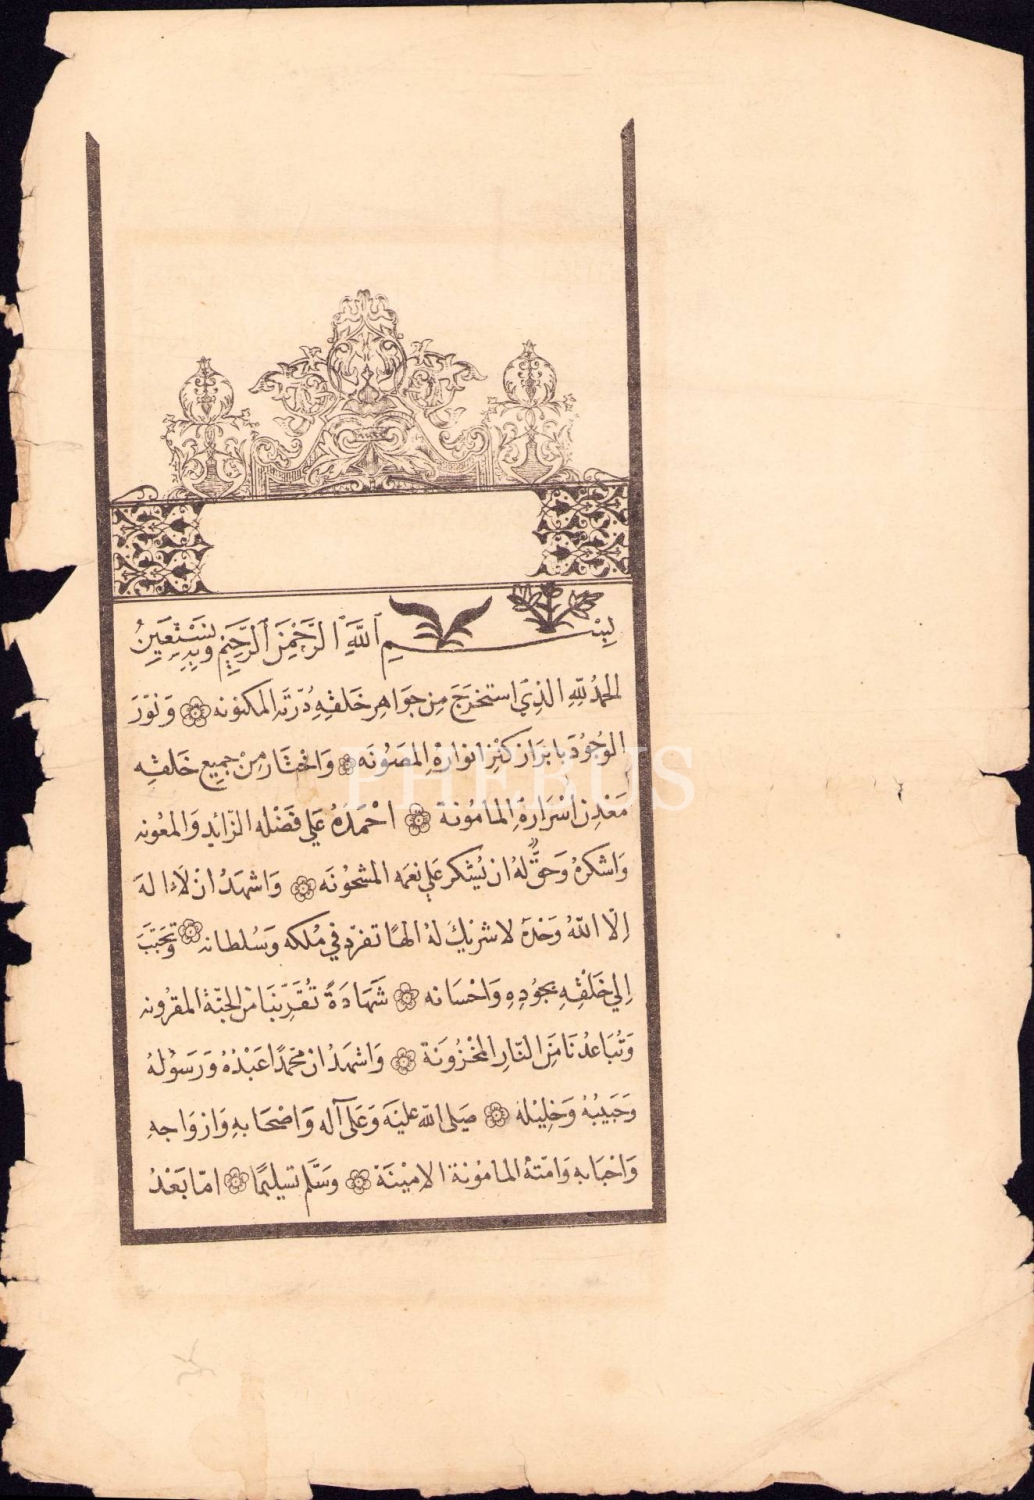 بِسْمِ اللَّهِ الرَّحْمٰنِ الرَّحِيمِ وَبِهِ نَسْتَعِينُ
الحمدُ للّهِ الذِي استخرَجَ مِن جَوَاهِر خَلقِهِ دُرّته المكنونه وَنوّرَ
الوُجُودَ بابرَاز كنزِ انوارهِ المصُونَه وَاختَارَ مِنْ جميع خَلقِه
مَعْدِن اسْرَارهِ المامُونة احْمَدُهُ عَلي فَضْله الزّائِد وَالمعُونه
وَاشكرُهُ وَحَقٌّ لهُ ان يُشكر عَلي نعمه المشحُونَه وَاشهَدُ انْ لَا الهَ
اِلّا اللّهُ وَحْدَهُ لا شرِيْكَ لهُ الهًا تفرّد فِي مُلكه وَسُلطانه وَتحَبّبَ
اِلي خَلْقِهِ بجُودِهِ وَاحْسَانه شَهَادَةً تُقَرِّبنَا منَ الجنّةِ المقرُونه
وَتُبَاعدُنَا مِنَ النّارِ المخْزُونَة وَاشهَدُ ان محَمّدًا عَبْدُهُ وَرَسُولهُ
وَحَبيْبُهُ وَخَلِيْلهُ صَلى اللّه عَليْهَ وَعَلى آله وَاصْحَابهِ وَازوَاجهِ
وَاحْبَابهِ وَامّتهُ المامُونة الامْينَة وَسَلّم تسْليمًا امّا بَعْدُ
PHEBUS